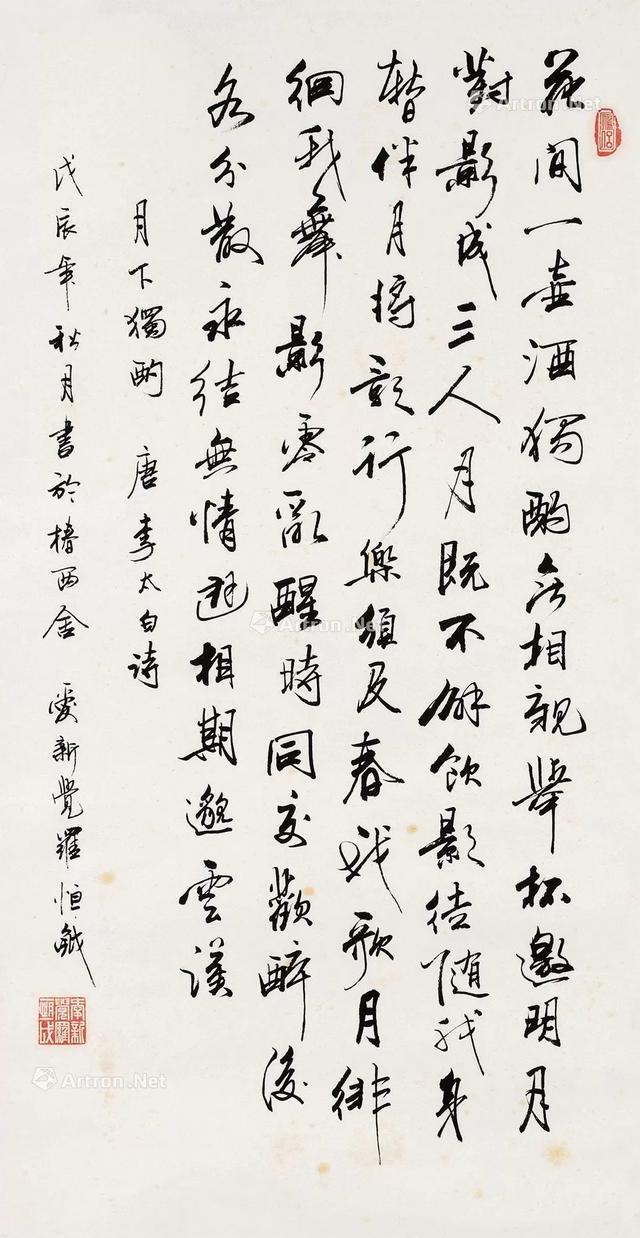 花間一壺酒獨酌无相親舉杯邀明月
對影成三人月既不解飲影徒随我身
暫伴月將影行樂須及春我歌月徘
徊我舞影零亂醒時同交歡醉後
各分散永結無情遊相期邈雲漢
月下獨酌 唐李太白詩
戊辰年秋月書於椿西舍 愛新覺羅恒鉞
Artron.Net
Artron.Net
Artron.Net
Artron.Net